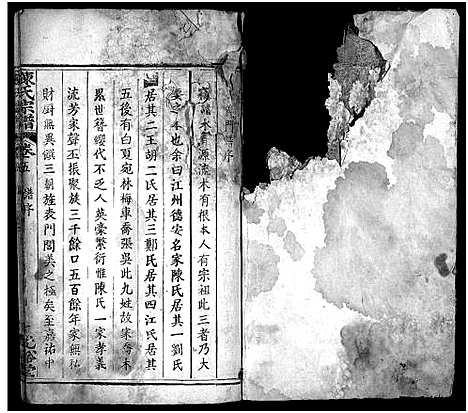 竊謂水有源流木有根本人有宗祖此三者乃大
婁之木也余曰江州德安名家陳氏居其一劉氏
居其二王胡二氏居其三鄭氏居其四江氏居其
五後有白夏宛林梅車喬張吳此九姓故宋喬木
累世簪纓代不乏人英豪繁衍惟陳氏一家孝義
流芳家聲丕振聚族三千餘口五百餘年家無私
財厨無異饌三朝旌表門閭美之極矣至嘉祐中
陳氏宗譜
卷五
譜序